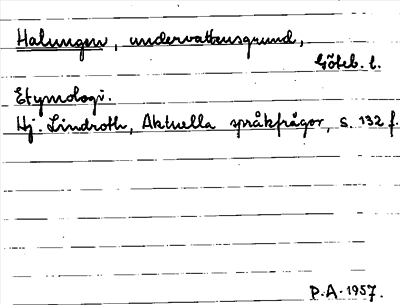 Halungen, undervattensgrund,
Göteb. l.
Etymologi.
Hj. Lindroth, Aktuella språkfrågor, s. 132 f.
P.A. 1957.